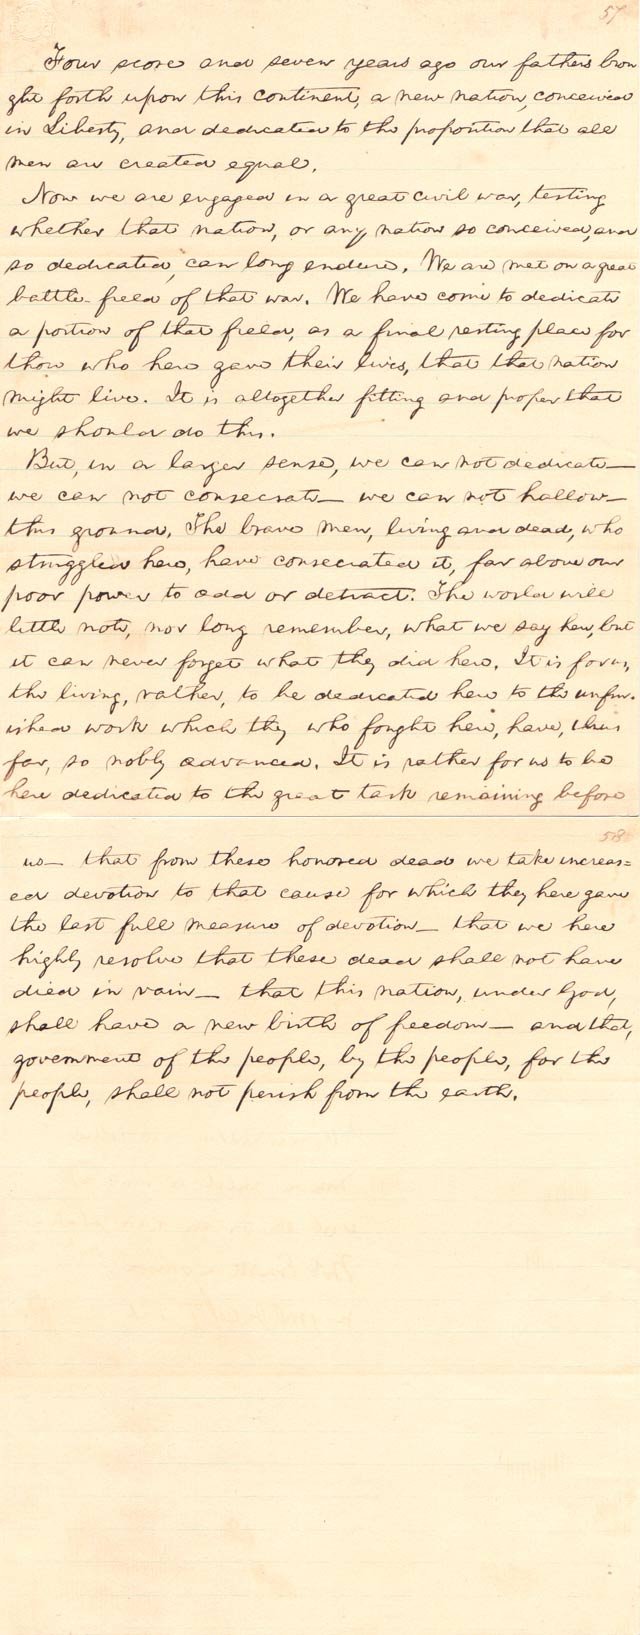 57
Four score and seven years ago our fathers brou
ght forth upon this continent, a new nation, conceived
in Liberty, and dedicated to the proposition that all
men are created equal.
Now we are engaged in a great civil war, testing
whether that nation, or any nation so conceived, and
so dedicated, can long endure. We are met on a great
battle-field of that war. We have come to dedicate
a portion of that field, as a final resting place for
those who here gave their lives, that that nation
might live. It is altogether fitting and proper that
we should do this.
But, in a larger sense, we can not dedicate—
we can not consecrate— we can not hallow—
this ground. The brave men, living and dead, who
struggled here, have consecrated it, far above our
poor power to add or detract. The world will
little note, nor long remember, what we say here, but
it can never forget what they did here. It is for us,
the living, rather, to be dedicated here to the unfin-
ished work which they who fought here, have, thus
far, so nobly advanced. It is rather for us to be
here dedicated to the great task remaining before
58
us— that from these honored dead we take increas=
ed devotion to that cause for which they here gave
the last full measure of devotion— that we here
highly resolve that these dead shall not have
died in vain— that this nation, under God,
shall have a new birth of freedom— and that,
government of the people, by the people, for the
people, shall not perish from the earth.